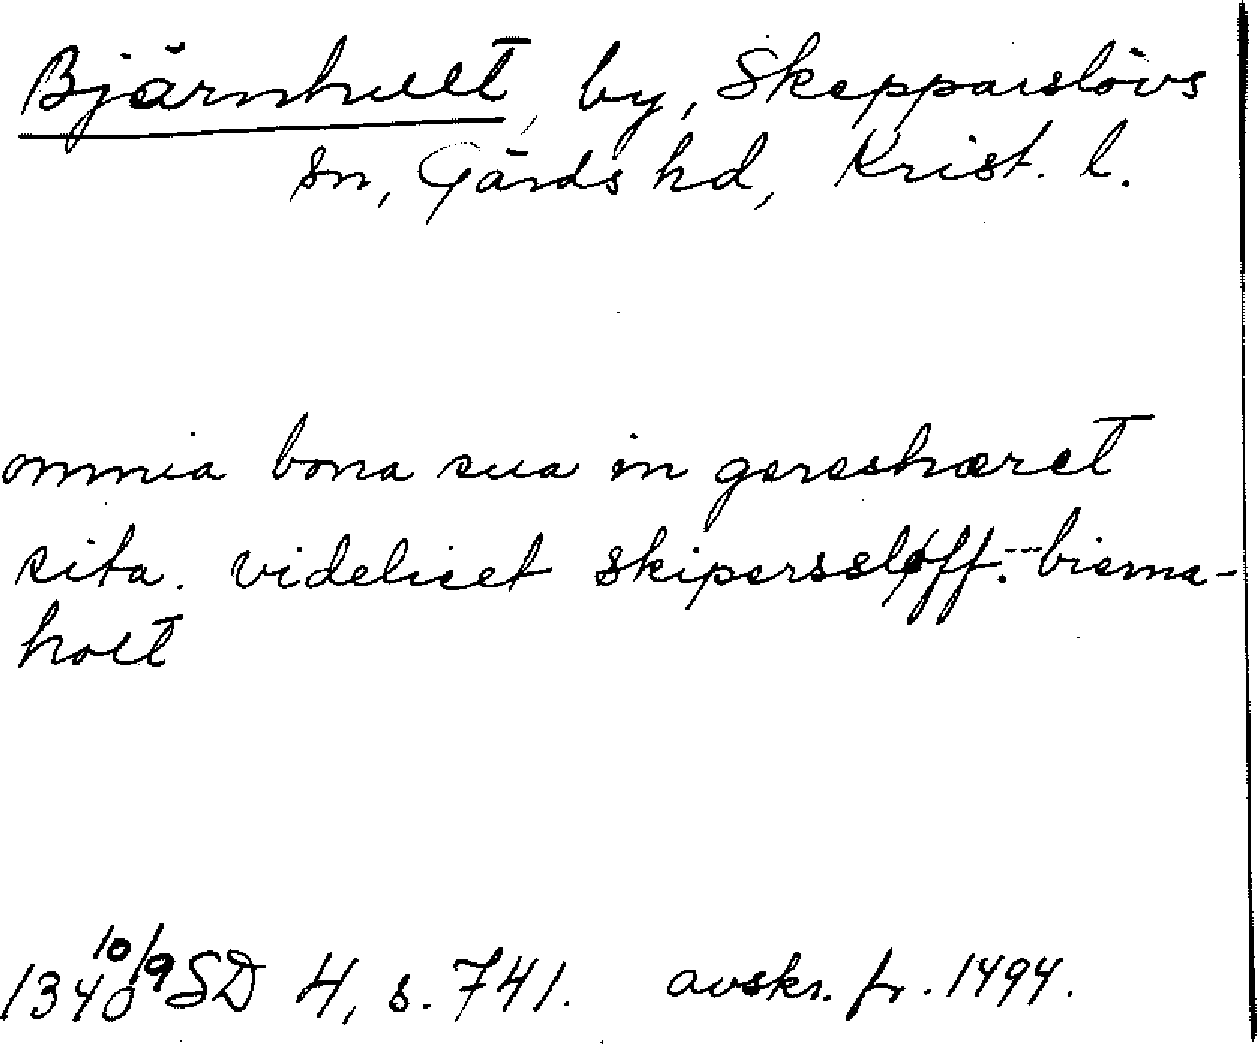 Bjärnhult, by, Skepparslövs
sn, Gärds hd, Krist. l.
omnia bona sua in gereshæret
sita. videlicet skiperssløff. --- bierna-
holt
1340 10/9 SD 4, s. 741. avskr. fr. 1494.